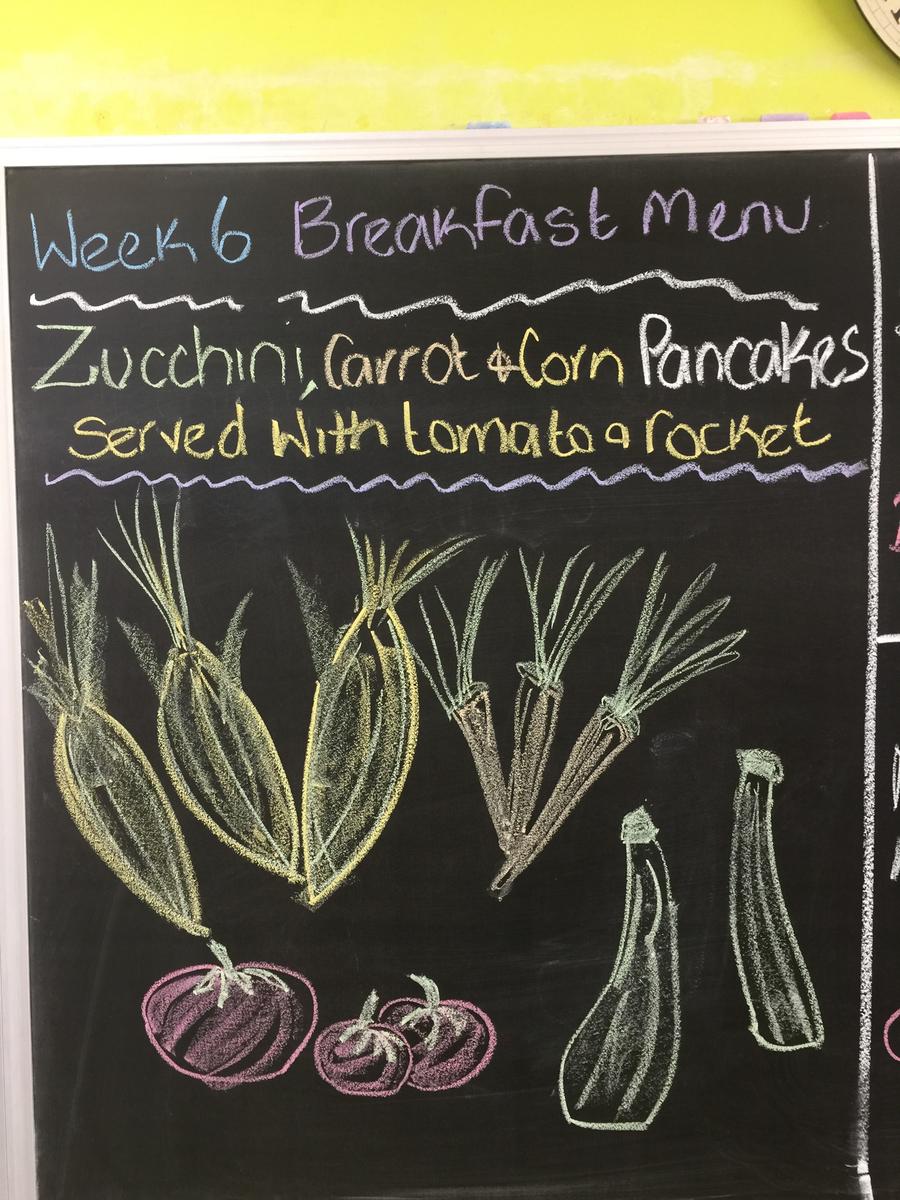 Week 6 Breakfast Menu
Zucchini, Carrot & Corn Pancakes
Served With tomato & rocket